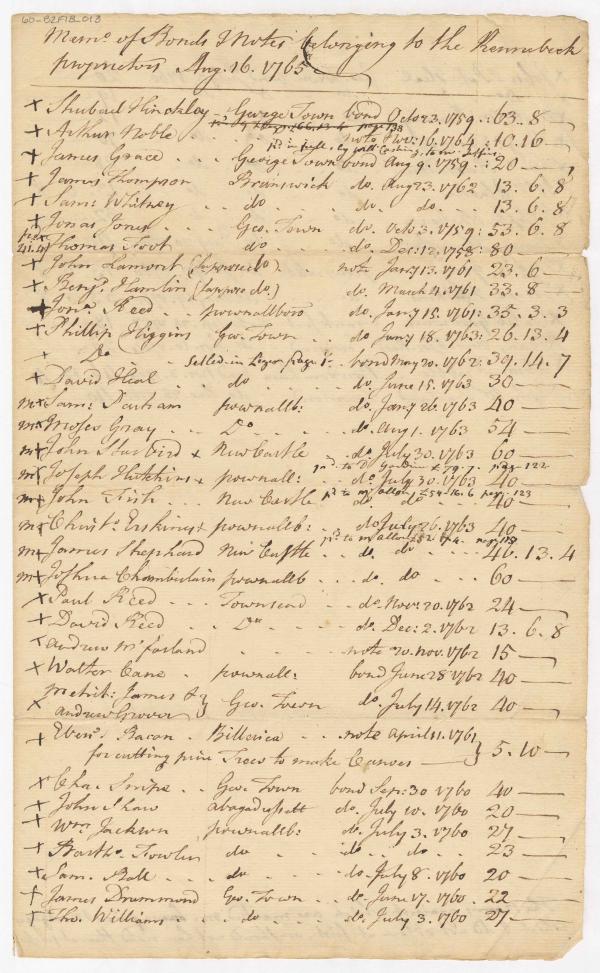 60-82F1B_013
Memo. of Bonds & Notes belonging to the Kennebeck
proprietors Aug. 16. 1765
x Shubael Hinckley - George Town bond Octo 22. 1759 .: 63. 8 -
x Arthur Noble . . note Nov: 16. 1764 .: 10. 16 -
pd in full
x James Grace . . George Town bond Aug 9. 1759 .: 20 -
x James Thompson Brunswick do. Aug 23. 1762 13. 6. 8
x Saml. Whitney . . do . . do do . . 13. 6. 8
x Jonas Jones . . Geo. Town do. Octo 3. 1759: 53. 6. 8
41.4 Thomas Foot do . . do. Dec: 12. 1758: 80 -
x John Lamont (Supposed do) . note Jany 13. 1761 23. 6 -
x Benja. Hamlin (Suppose do.) do. March 4. 1761 33. 8
x Jona. Reed - pownallboro do. Jany 15. 1761: 35. 3. 3
x Phillip Higgins Geo. Town . . do Jany 18. 1763: 26. 13. 4
x Do . . Setled in Leger page bond May 20. 1762: 39. 14. 7
x David Heal . . do . . do. June 15. 1763 30 -
mx Saml. Parham pownallb: do. Jany 26. 1763 40 -
mx Moses Gray . . Do . . do. Aug 1. 1763 54 -
mx John Starbird x New Castle . do. July 30. 1763 60 -
pd. to page 122
mx Joseph Hutchins x pownall: do. July 30. 1763 40 -
pd to £54. 16. 6 page 123
mx John Fish . . New Castle do. do. . . 40 -
mx Christo. Erskins x pownallb: . do July 26. 1763 40 -
pd to
mx James Shephard New Castle . . do. do . . 46. 13. 4
mx Joshua Chamberlain pownallb . . do. do . . 60 -
x Paul Reed . . Townsend . . do. Nov: 20. 1762 24 -
x David Reed . . Do . . do. Dec: 2. 1762 13. 6. 8
x Andrew McFarland . note 20. Nov. 1762 15 -
x Walter Cane . pownall: bond June 28 1762 40 -
James &
x Andrew Grover } Geo. Town do. July 14. 1762 40 -
x Ebenr. Bacon . Billerica . . note April 11. 1761
for cutting pine Trees to make Canoes - } 5. 10 -
x Cha. Snipe . . Geo. Town bond Sep: 30 1760 40 -
x John Shaw abagadussett do. July 10. 1760 20 -
x Wm. Jackson pownallb: do. July 3. 1760 27 -
x Bartho. Fowler do . . do . . do . . 23 -
x Sam. Ball . . do . . do. July 8. 1760 20 -
x James Drummond Geo. Town . do. June 17. 1760. 22 -
x Tho. Williams . . do . . do. July 3. 1760 27 -